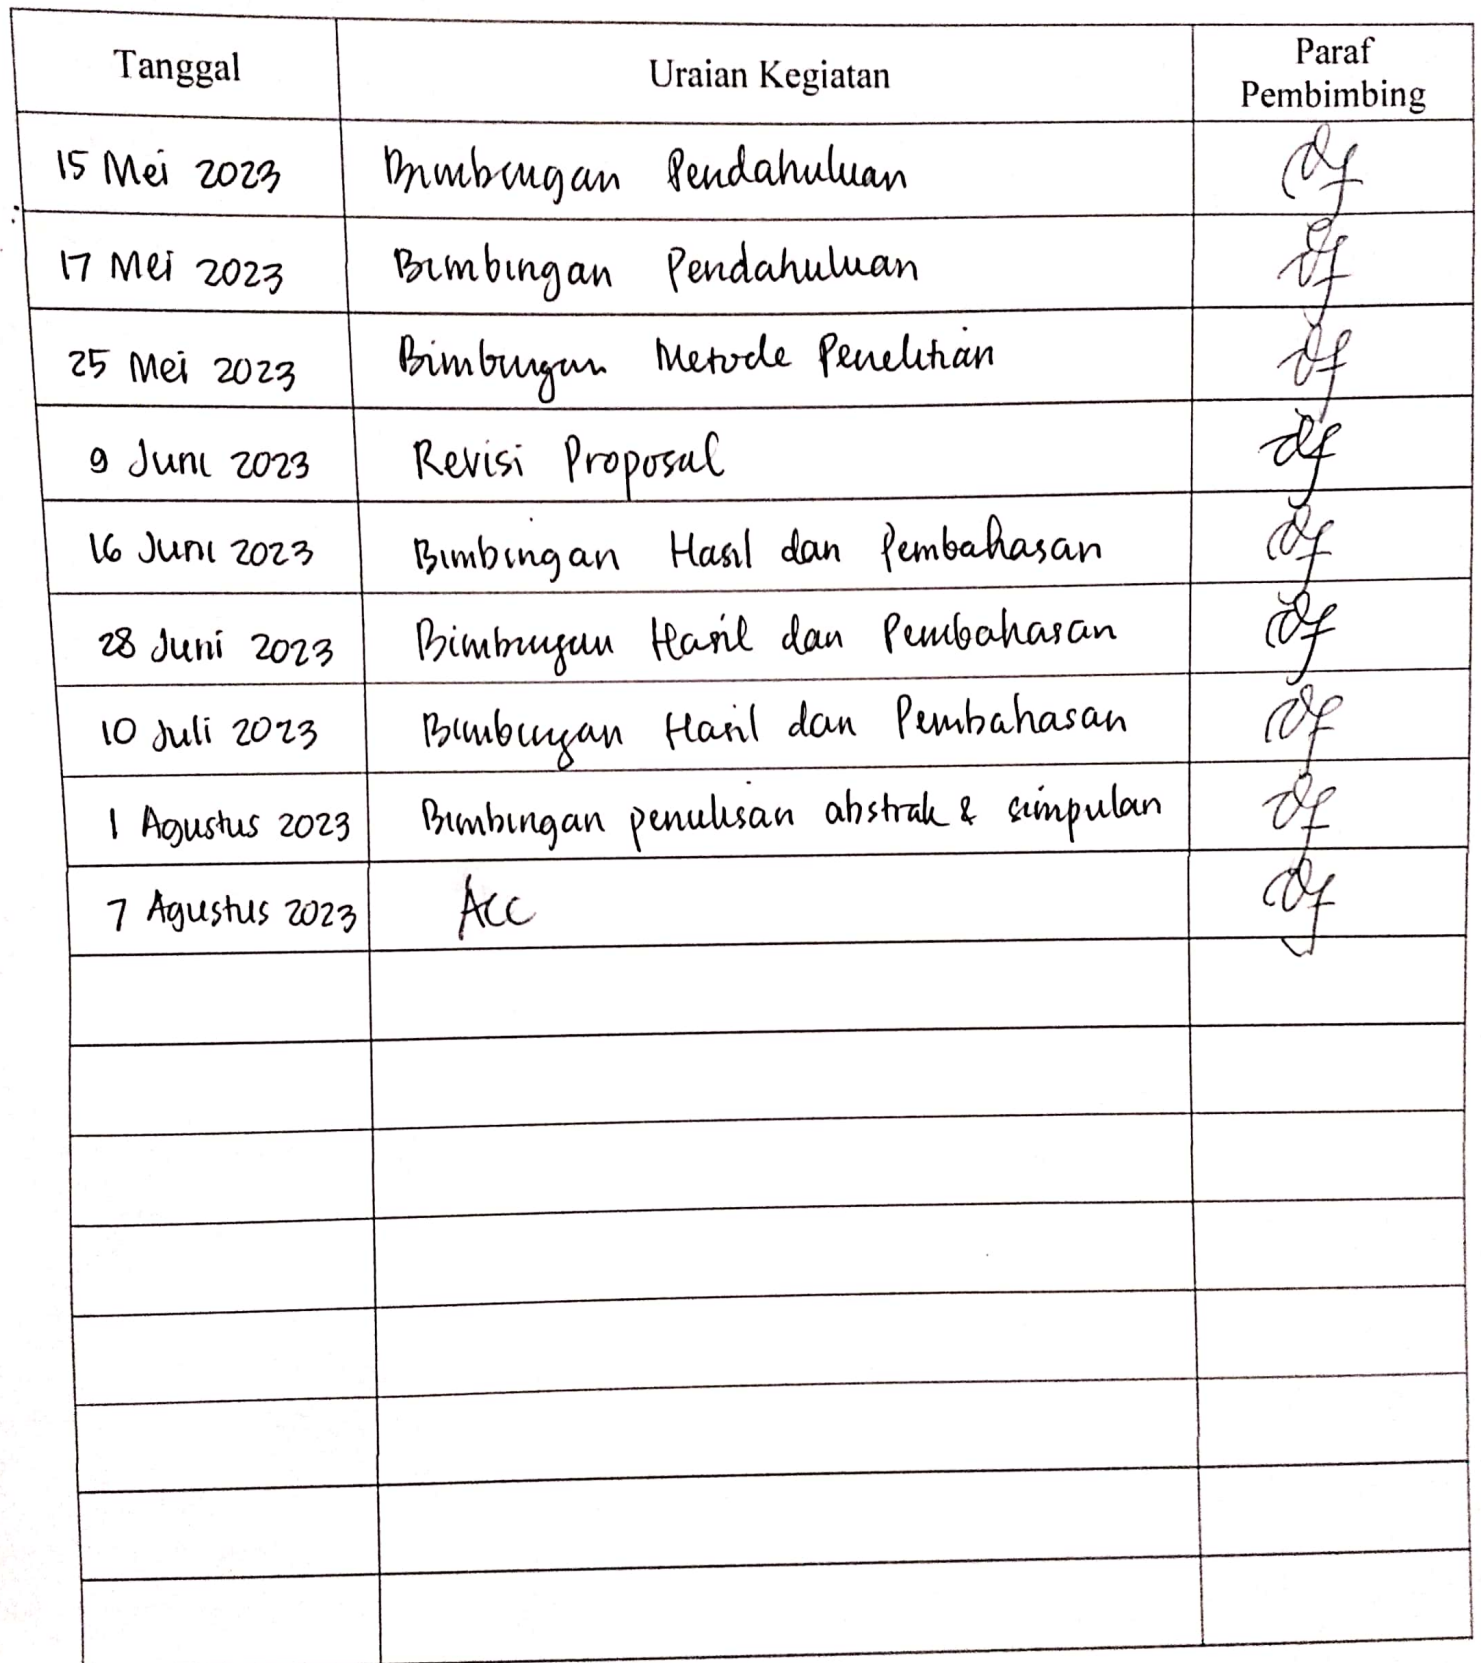 Tanggal Uraian Kegiatan Paraf
Pembimbing
15 Mei 2023 Bimbingan Pendahuluan
17 Mei 2023 Bimbingan Pendahuluan
25 Mei 2023 Bimbingan Metode Penelitian
9 Juni 2023 Revisi Proposal
16 Juni 2023 Bimbingan Hasil dan Pembahasan
28 Juni 2023 Bimbingan Hasil dan Pembahasan
10 Juli 2023 Bimbingan Hasil dan Pembahasan
1 Agustus 2023 Bimbingan penulisan abstrak & simpulan
7 Agustus 2023 Acc